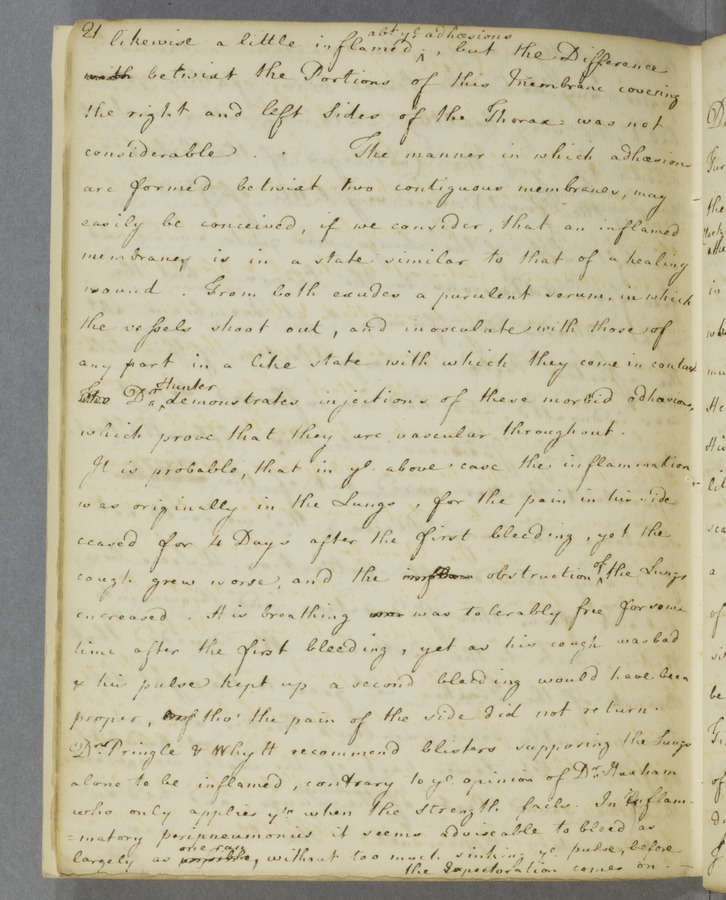 21
likewise a little inflamed abt ye adhæsions, but the Difference
betwixt the Portions of this Membrane covering
the right and left Sides of the Thorax was not
considerable . . The manner in which adhæsions
are formed betwixt two contiguous membranes, may
easily be conceived, if we consider, that an inflamed
membrane is in a state similar to that of a healing
wound . From both exudes a purulent serum, in which
the vessels shoot out, and inosculate with those of
any part in a like state with which they come in contact
Dr. Hunter demonstrates injections of these morbid adhæsions,
which prove that they are vascular throughout.
It is probable, that in ye above case the inflammation
was originally in the Lungs, for the pain in his side
ceased for 4 Days after the first bleeding, yet the
cough grew worse, and the obstruction of the Lungs
encreased . His breathing was tolerably free for some
time after the first bleeding, yet as his cough was bad
& his pulse kept up a second bleeding would have been
proper, tho' the pain of the side did not return.
Drs Pringle & Whytt recommend blisters supposing the Lungs
alone to be inflamed, contrary to ye opinion of Dr. Huxham
who only applies ym when the strength fails. In Inflam-
=matory peripneumonies it seems adviseable to bleed as
largely as one can, without too much sinking ye pulse, before
the Expectoration comes on. —